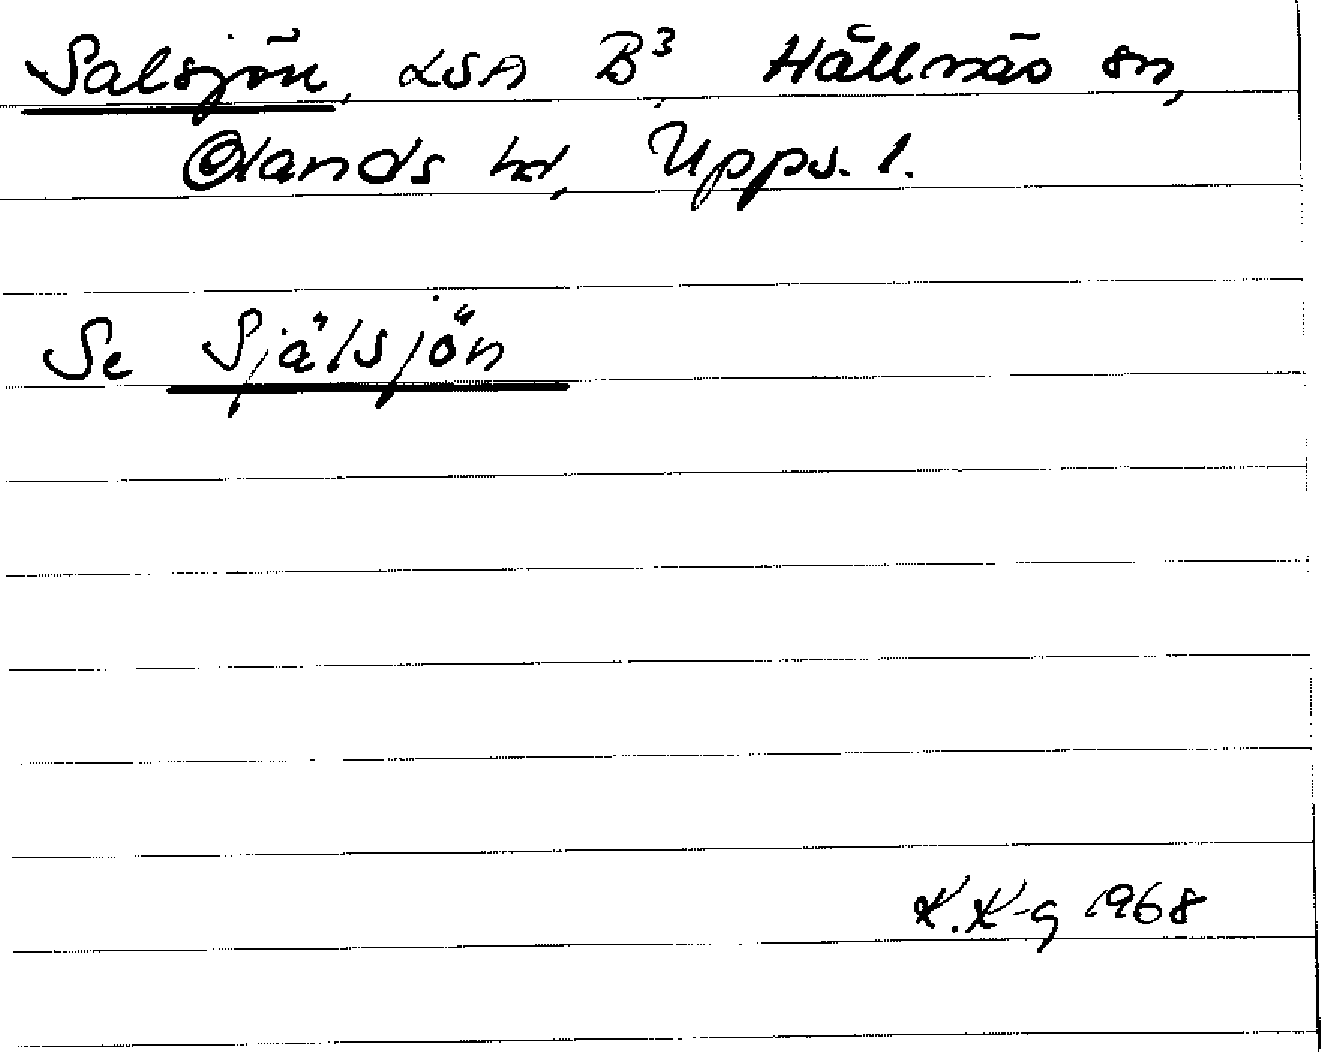 Salsjön, LSA B³ Hållnäs sn,
Olands hd, Upps. l.
Se Själsjön
K.K-g 1968